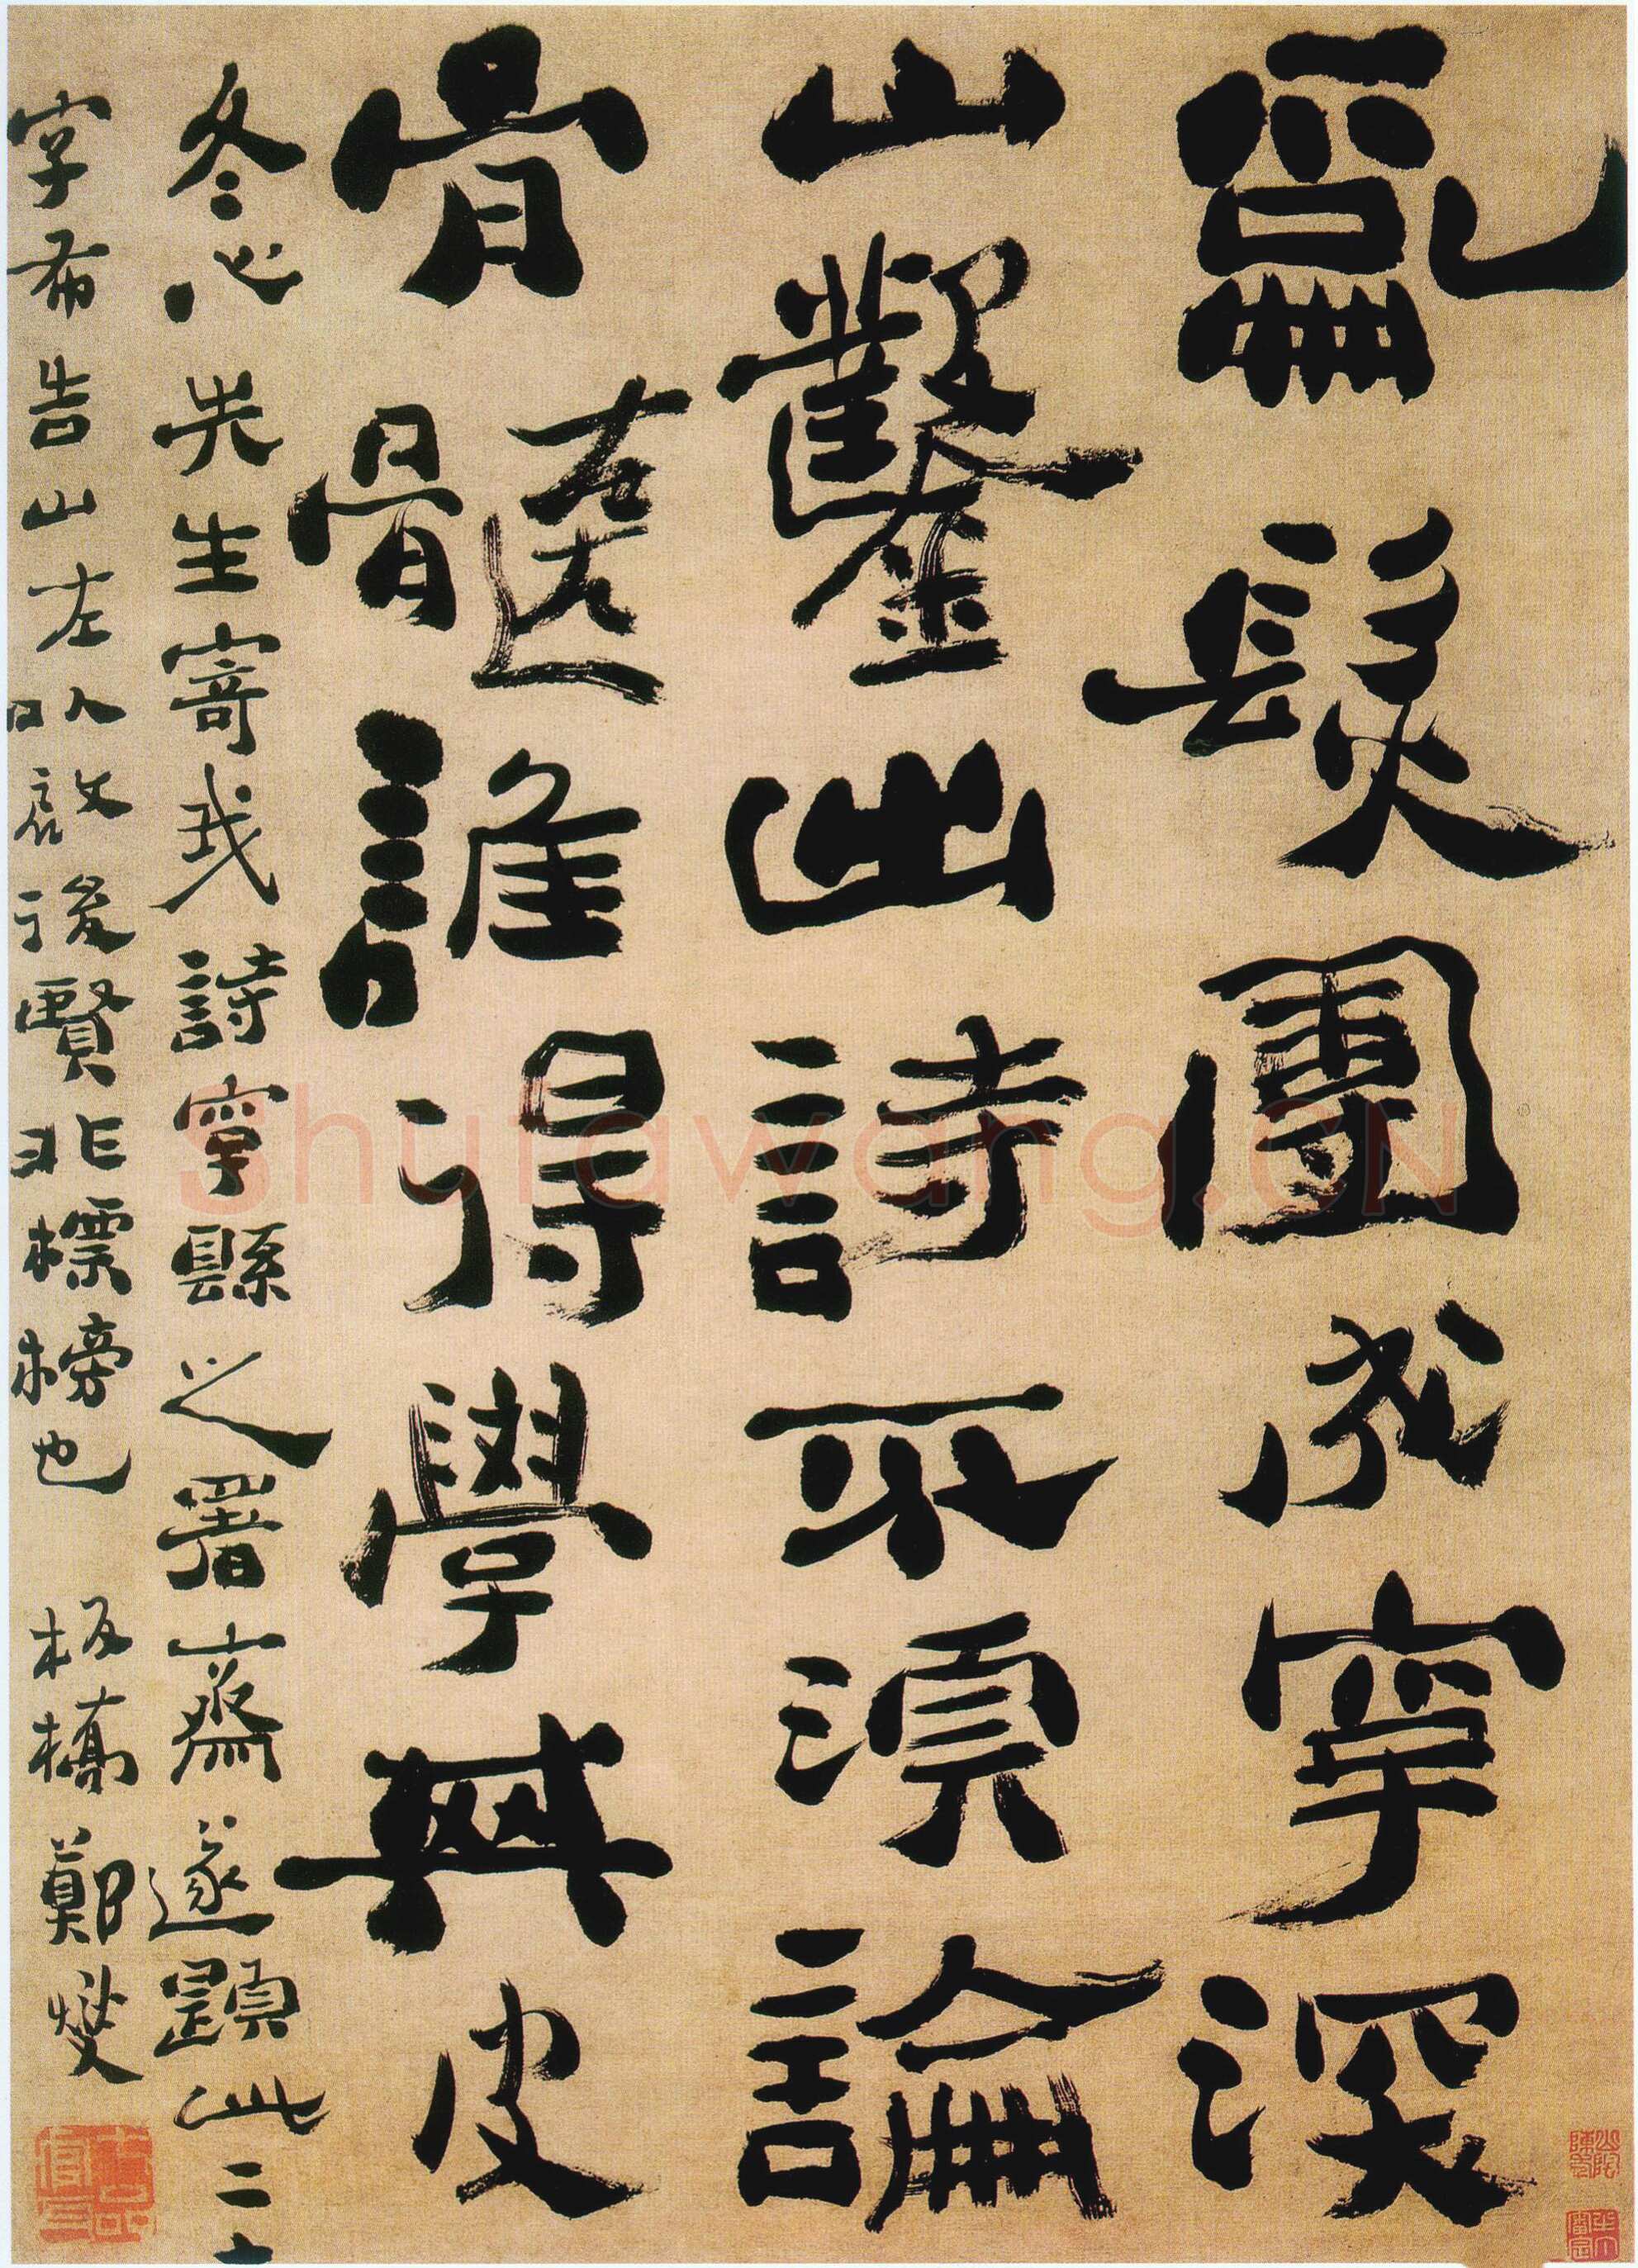 亂髮團成字深
山鑿出詩不須論
骨髓誰得學其皮
冬心先生寄我詩字懸之署齋遂題此二十
字希告山左以啟後賢非標榜也 板橋鄭燮
Shufawang.CN